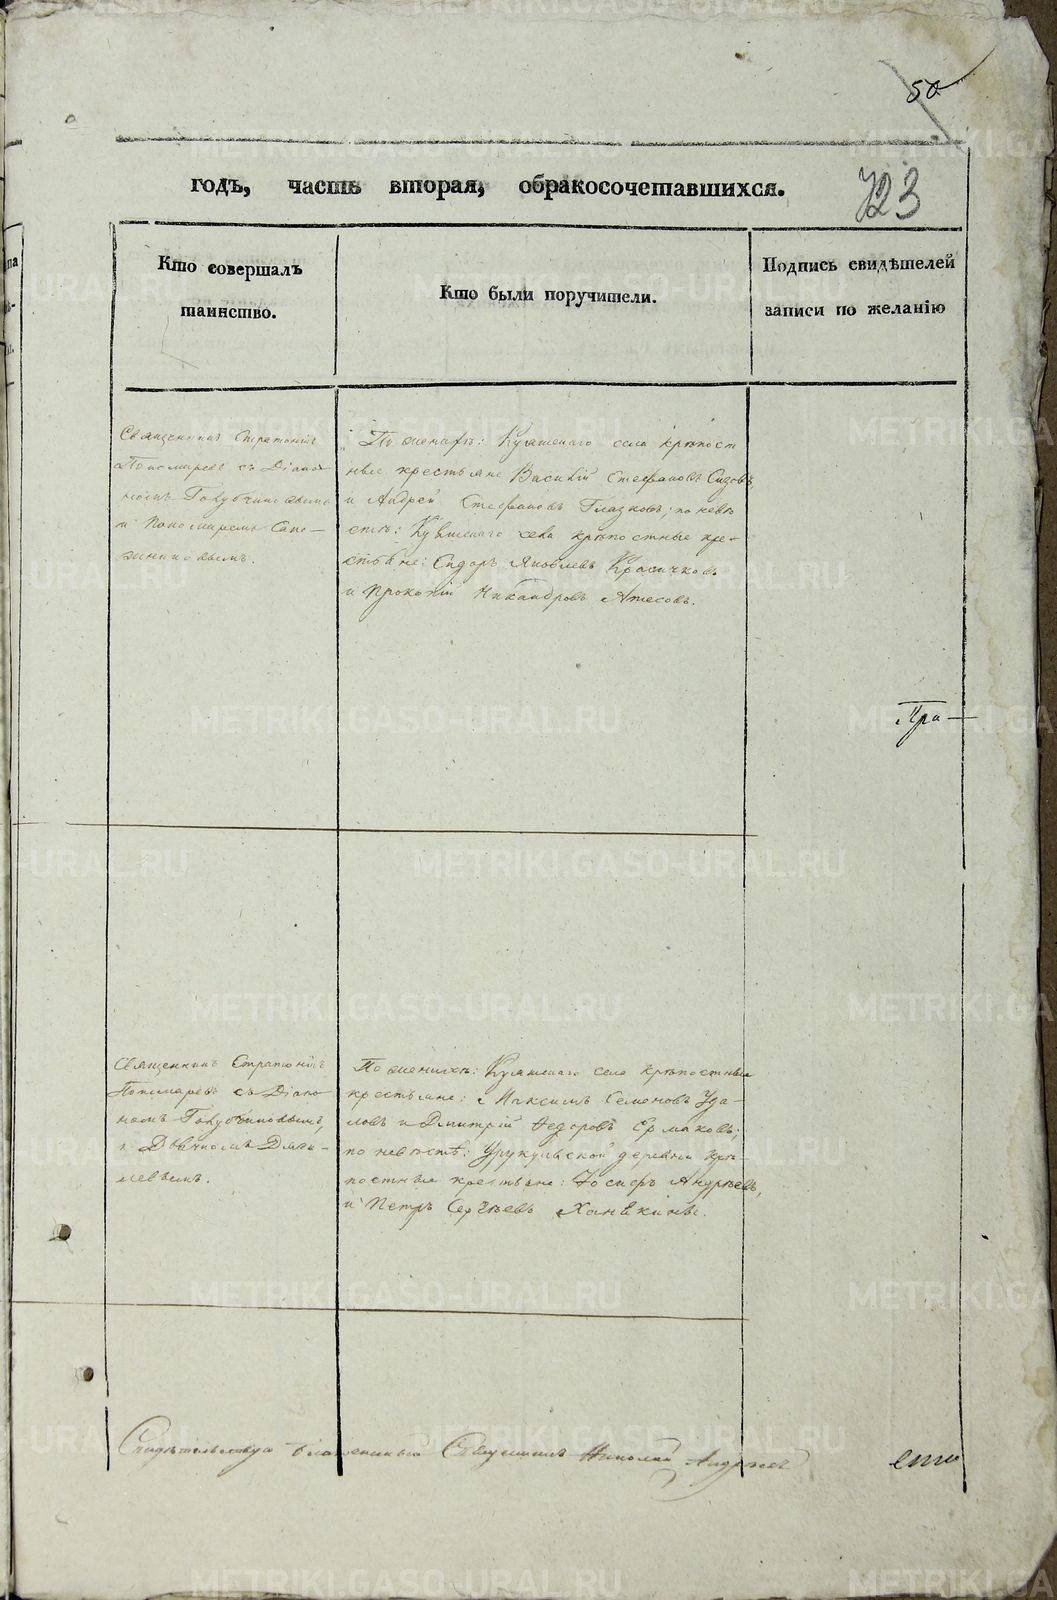 50
годъ, часть вторая, обракосочетавшихся.
723
Кто совершалъ
таинство.
Кто были поручители.
Подпись свидѣтелей
записи по желанію
Священникъ Стратоникъ
Пономаревъ съ Діако-
номъ Голубчиковымъ
и Пономаремъ Сапо-
жниковымъ.
По женихѣ: Куяшскаго села крѣпост
ные крестьяне Василій Стефановъ Сизовъ
и Андрей Стефановъ Глазковъ; по невѣ
стѣ: Куяшскаго села крѣпостные кре-
стьяне: Сидоръ Яковлевъ Красичковъ
и Прокопій Никандровъ Атесовъ.
Пра-
Священникъ Стратоникъ
Пономаревъ съ Діако-
номъ Голубчиковымъ,
и Дьячкомъ
По женихѣ: Куяшскаго села крѣпостные
крестьяне: Максимъ Семеновъ Уда-
ловъ и Дмитрій Ѳедоровъ Ермаковъ;
по невѣстѣ: Урукульской деревни крѣ-
постные крестьяне: Іосифъ Андреевъ,
и Петръ Сергѣевъ Ханжины.
Свидѣтельствовалъ Благочинный Священникъ Николай Андреев